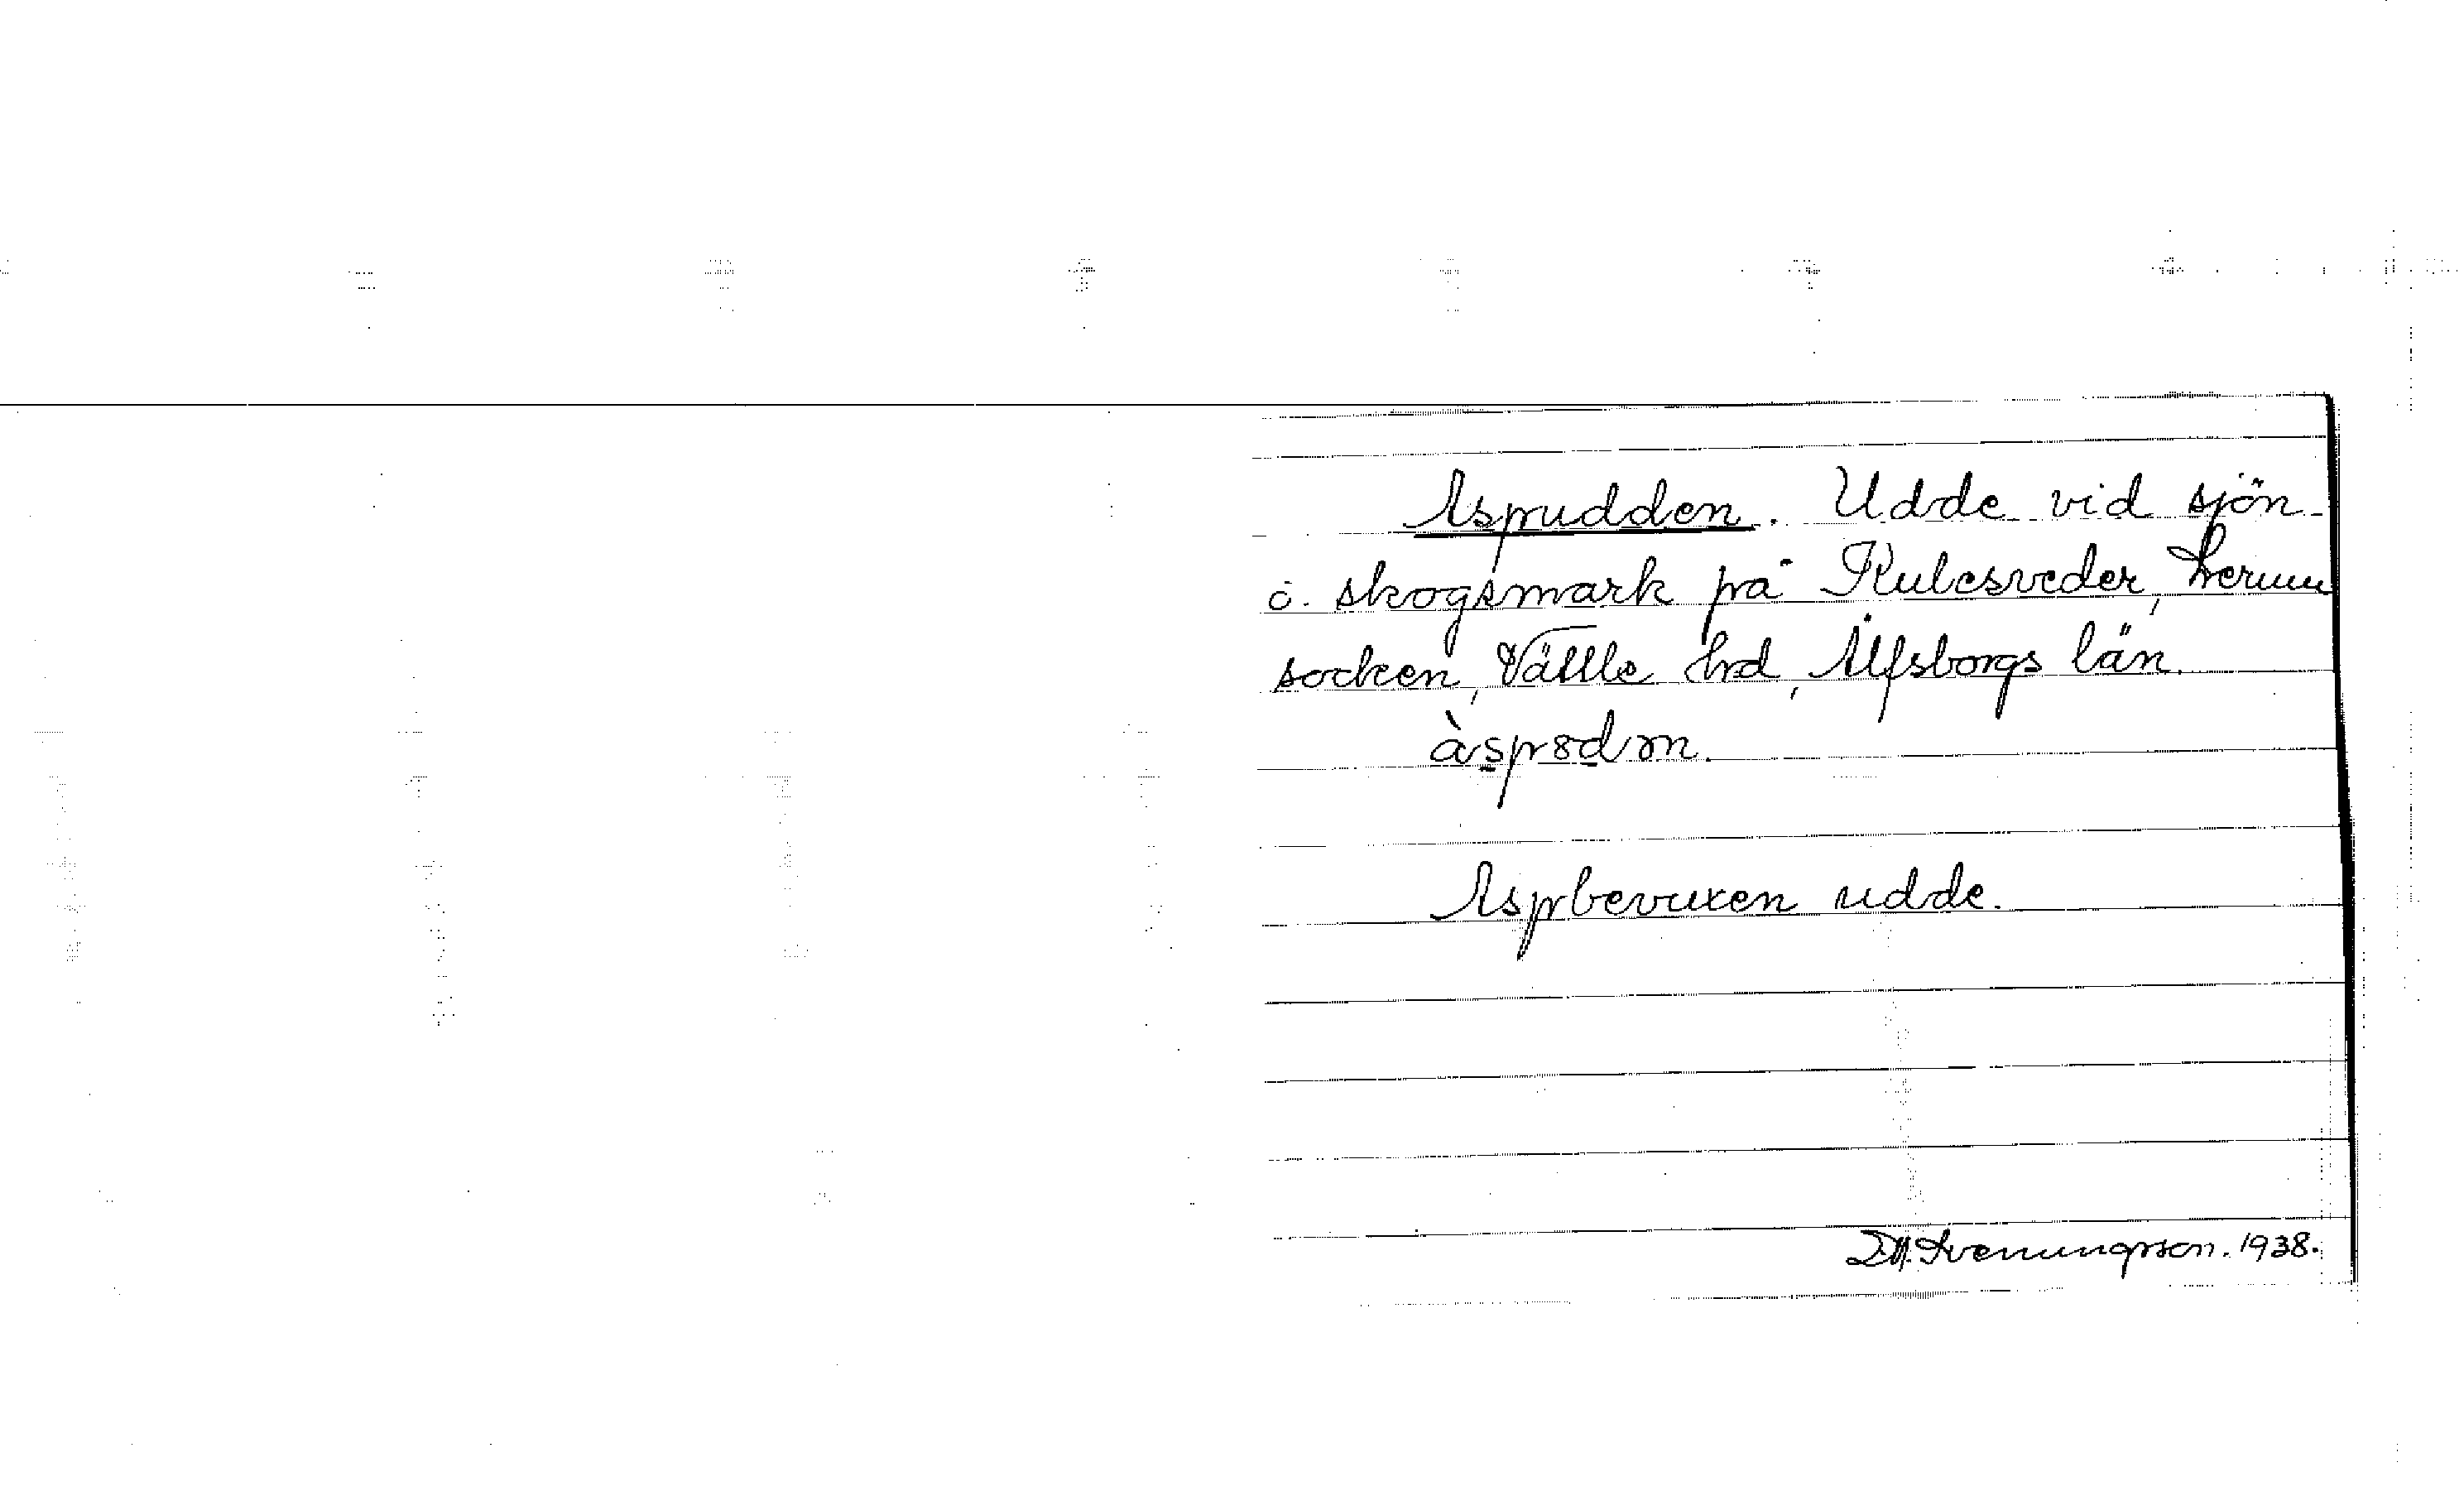 Aspudden. Udde vid sjön
i skogsmark på Kulesveder, Lerum
socken, Vättle hrd, Älfsborgs län.
Aspbevuxen udde.
D.A. Svenungsson. 1938.